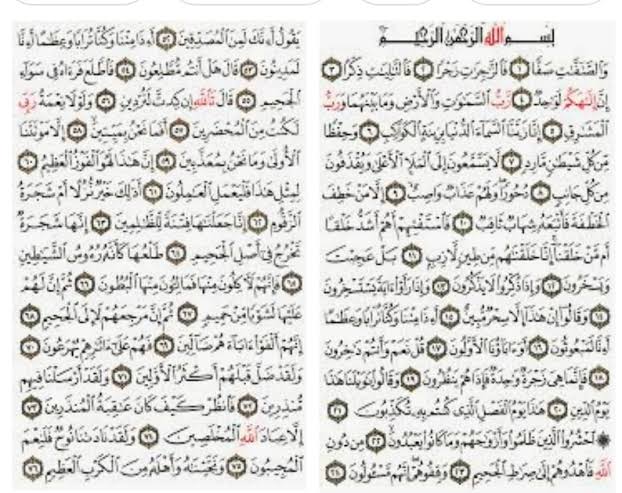 بِسْمِ اللَّهِ الرَّحْمَٰنِ الرَّحِيمِ
وَالصَّٰٓفَّٰتِ صَفًّا ١ فَالزَّٰجِرَٰتِ زَجْرًا ٢ فَالتَّٰلِيَٰتِ ذِكْرًا ٣
إِنَّ إِلَٰهَكُمْ لَوَٰحِدٌ ٤ رَّبُّ السَّمَٰوَٰتِ وَالْأَرْضِ وَمَا بَيْنَهُمَا وَرَبُّ
الْمَشَٰرِقِ ٥ إِنَّا زَيَّنَّا السَّمَآءَ الدُّنْيَا بِزِينَةٍ الْكَوَاكِبِ ٦ وَحِفْظًا
مِّن كُلِّ شَيْطَٰنٍ مَّارِدٍ ٧ لَّا يَسَّمَّعُونَ إِلَى الْمَلَإِ الْأَعْلَىٰ وَيُقْذَفُونَ
مِن كُلِّ جَانِبٍ ٨ دُحُورًا وَلَهُمْ عَذَابٌ وَاصِبٌ ٩ إِلَّا مَنْ خَطِفَ
الْخَطْفَةَ فَأَتْبَعَهُ شِهَابٌ ثَاقِبٌ ١٠ فَاسْتَفْتِهِمْ أَهُمْ أَشَدُّ خَلْقًا
أَم مَّنْ خَلَقْنَا إِنَّا خَلَقْنَٰهُم مِّن طِينٍ لَّازِبٍ ١١ بَلْ عَجِبْتَ
وَيَسْخَرُونَ ١٢ وَإِذَا ذُكِّرُوا لَا يَذْكُرُونَ ١٣ وَإِذَا رَأَوْا ءَايَةً يَسْتَسْخِرُونَ
١٤ وَقَالُوا إِنْ هَٰذَا إِلَّا سِحْرٌ مُّبِينٌ ١٥ أَءِذَا مِتْنَا وَكُنَّا تُرَابًا وَعِظَٰمًا
أَءِنَّا لَمَبْعُوثُونَ ١٦ أَوَءَابَآؤُنَا الْأَوَّلُونَ ١٧ قُلْ نَعَمْ وَأَنتُمْ دَٰخِرُونَ
١٨ فَإِنَّمَا هِيَ زَجْرَةٌ وَٰحِدَةٌ فَإِذَا هُمْ يَنظُرُونَ ١٩ وَقَالُوا يَٰوَيْلَنَا هَٰذَا
يَوْمُ الدِّينِ ٢٠ هَٰذَا يَوْمُ الْفَصْلِ الَّذِي كُنتُم بِهِ تُكَذِّبُونَ ٢١
۞ احْشُرُوا الَّذِينَ ظَلَمُوا وَأَزْوَٰجَهُمْ وَمَا كَانُوا يَعْبُدُونَ ٢٢ مِن دُونِ
اللَّهِ فَاهْدُوهُمْ إِلَىٰ صِرَٰطِ الْجَحِيمِ ٢٣ وَقِفُوهُمْ إِنَّهُم مَّسْـُٔولُونَ ٢٤
يَقُولُ أَءِنَّكَ لَمِنَ الْمُصَدِّقِينَ ٥٢ أَءِذَا مِتْنَا وَكُنَّا تُرَابًا وَعِظَٰمًا أَءِنَّا
لَمَدِينُونَ ٥٣ قَالَ هَلْ أَنتُم مُّطَّلِعُونَ ٥٤ فَاطَّلَعَ فَرَءَاهُ فِي سَوَآءِ
الْجَحِيمِ ٥٥ قَالَ تَاللَّهِ إِن كِدتَّ لَتُرْدِينِ ٥٦ وَلَوْلَا نِعْمَةُ رَبِّي
لَكُنتُ مِنَ الْمُحْضَرِينَ ٥٧ أَفَمَا نَحْنُ بِمَيِّتِينَ ٥٨ إِلَّا مَوْتَتَنَا
الْأُولَىٰ وَمَا نَحْنُ بِمُعَذَّبِينَ ٥٩ إِنَّ هَٰذَا لَهُوَ الْفَوْزُ الْعَظِيمُ ٦٠
لِمِثْلِ هَٰذَا فَلْيَعْمَلِ الْعَٰمِلُونَ ٦١ أَذَٰلِكَ خَيْرٌ نُّزُلًا أَمْ شَجَرَةُ
الزَّقُّومِ ٦٢ إِنَّا جَعَلْنَٰهَا فِتْنَةً لِّلظَّٰلِمِينَ ٦٣ إِنَّهَا شَجَرَةٌ
تَخْرُجُ فِي أَصْلِ الْجَحِيمِ ٦٤ طَلْعُهَا كَأَنَّهُ رُءُوسُ الشَّيَٰطِينِ
٦٥ فَإِنَّهُمْ لَءَاكِلُونَ مِنْهَا فَمَالِـُٔونَ مِنْهَا الْبُطُونَ ٦٦ ثُمَّ إِنَّ لَهُمْ
عَلَيْهَا لَشَوْبًا مِّنْ حَمِيمٍ ٦٧ ثُمَّ إِنَّ مَرْجِعَهُمْ لَإِلَى الْجَحِيمِ ٦٨
إِنَّهُمْ أَلْفَوْا ءَابَآءَهُمْ ضَآلِّينَ ٦٩ فَهُمْ عَلَىٰ ءَاثَٰرِهِمْ يُهْرَعُونَ ٧٠
وَلَقَدْ ضَلَّ قَبْلَهُمْ أَكْثَرُ الْأَوَّلِينَ ٧١ وَلَقَدْ أَرْسَلْنَا فِيهِم
مُّنذِرِينَ ٧٢ فَانظُرْ كَيْفَ كَانَ عَٰقِبَةُ الْمُنذَرِينَ ٧٣
إِلَّا عِبَادَ اللَّهِ الْمُخْلَصِينَ ٧٤ وَلَقَدْ نَادَىٰنَا نُوحٌ فَلَنِعْمَ
الْمُجِيبُونَ ٧٥ وَنَجَّيْنَٰهُ وَأَهْلَهُ مِنَ الْكَرْبِ الْعَظِيمِ ٧٦